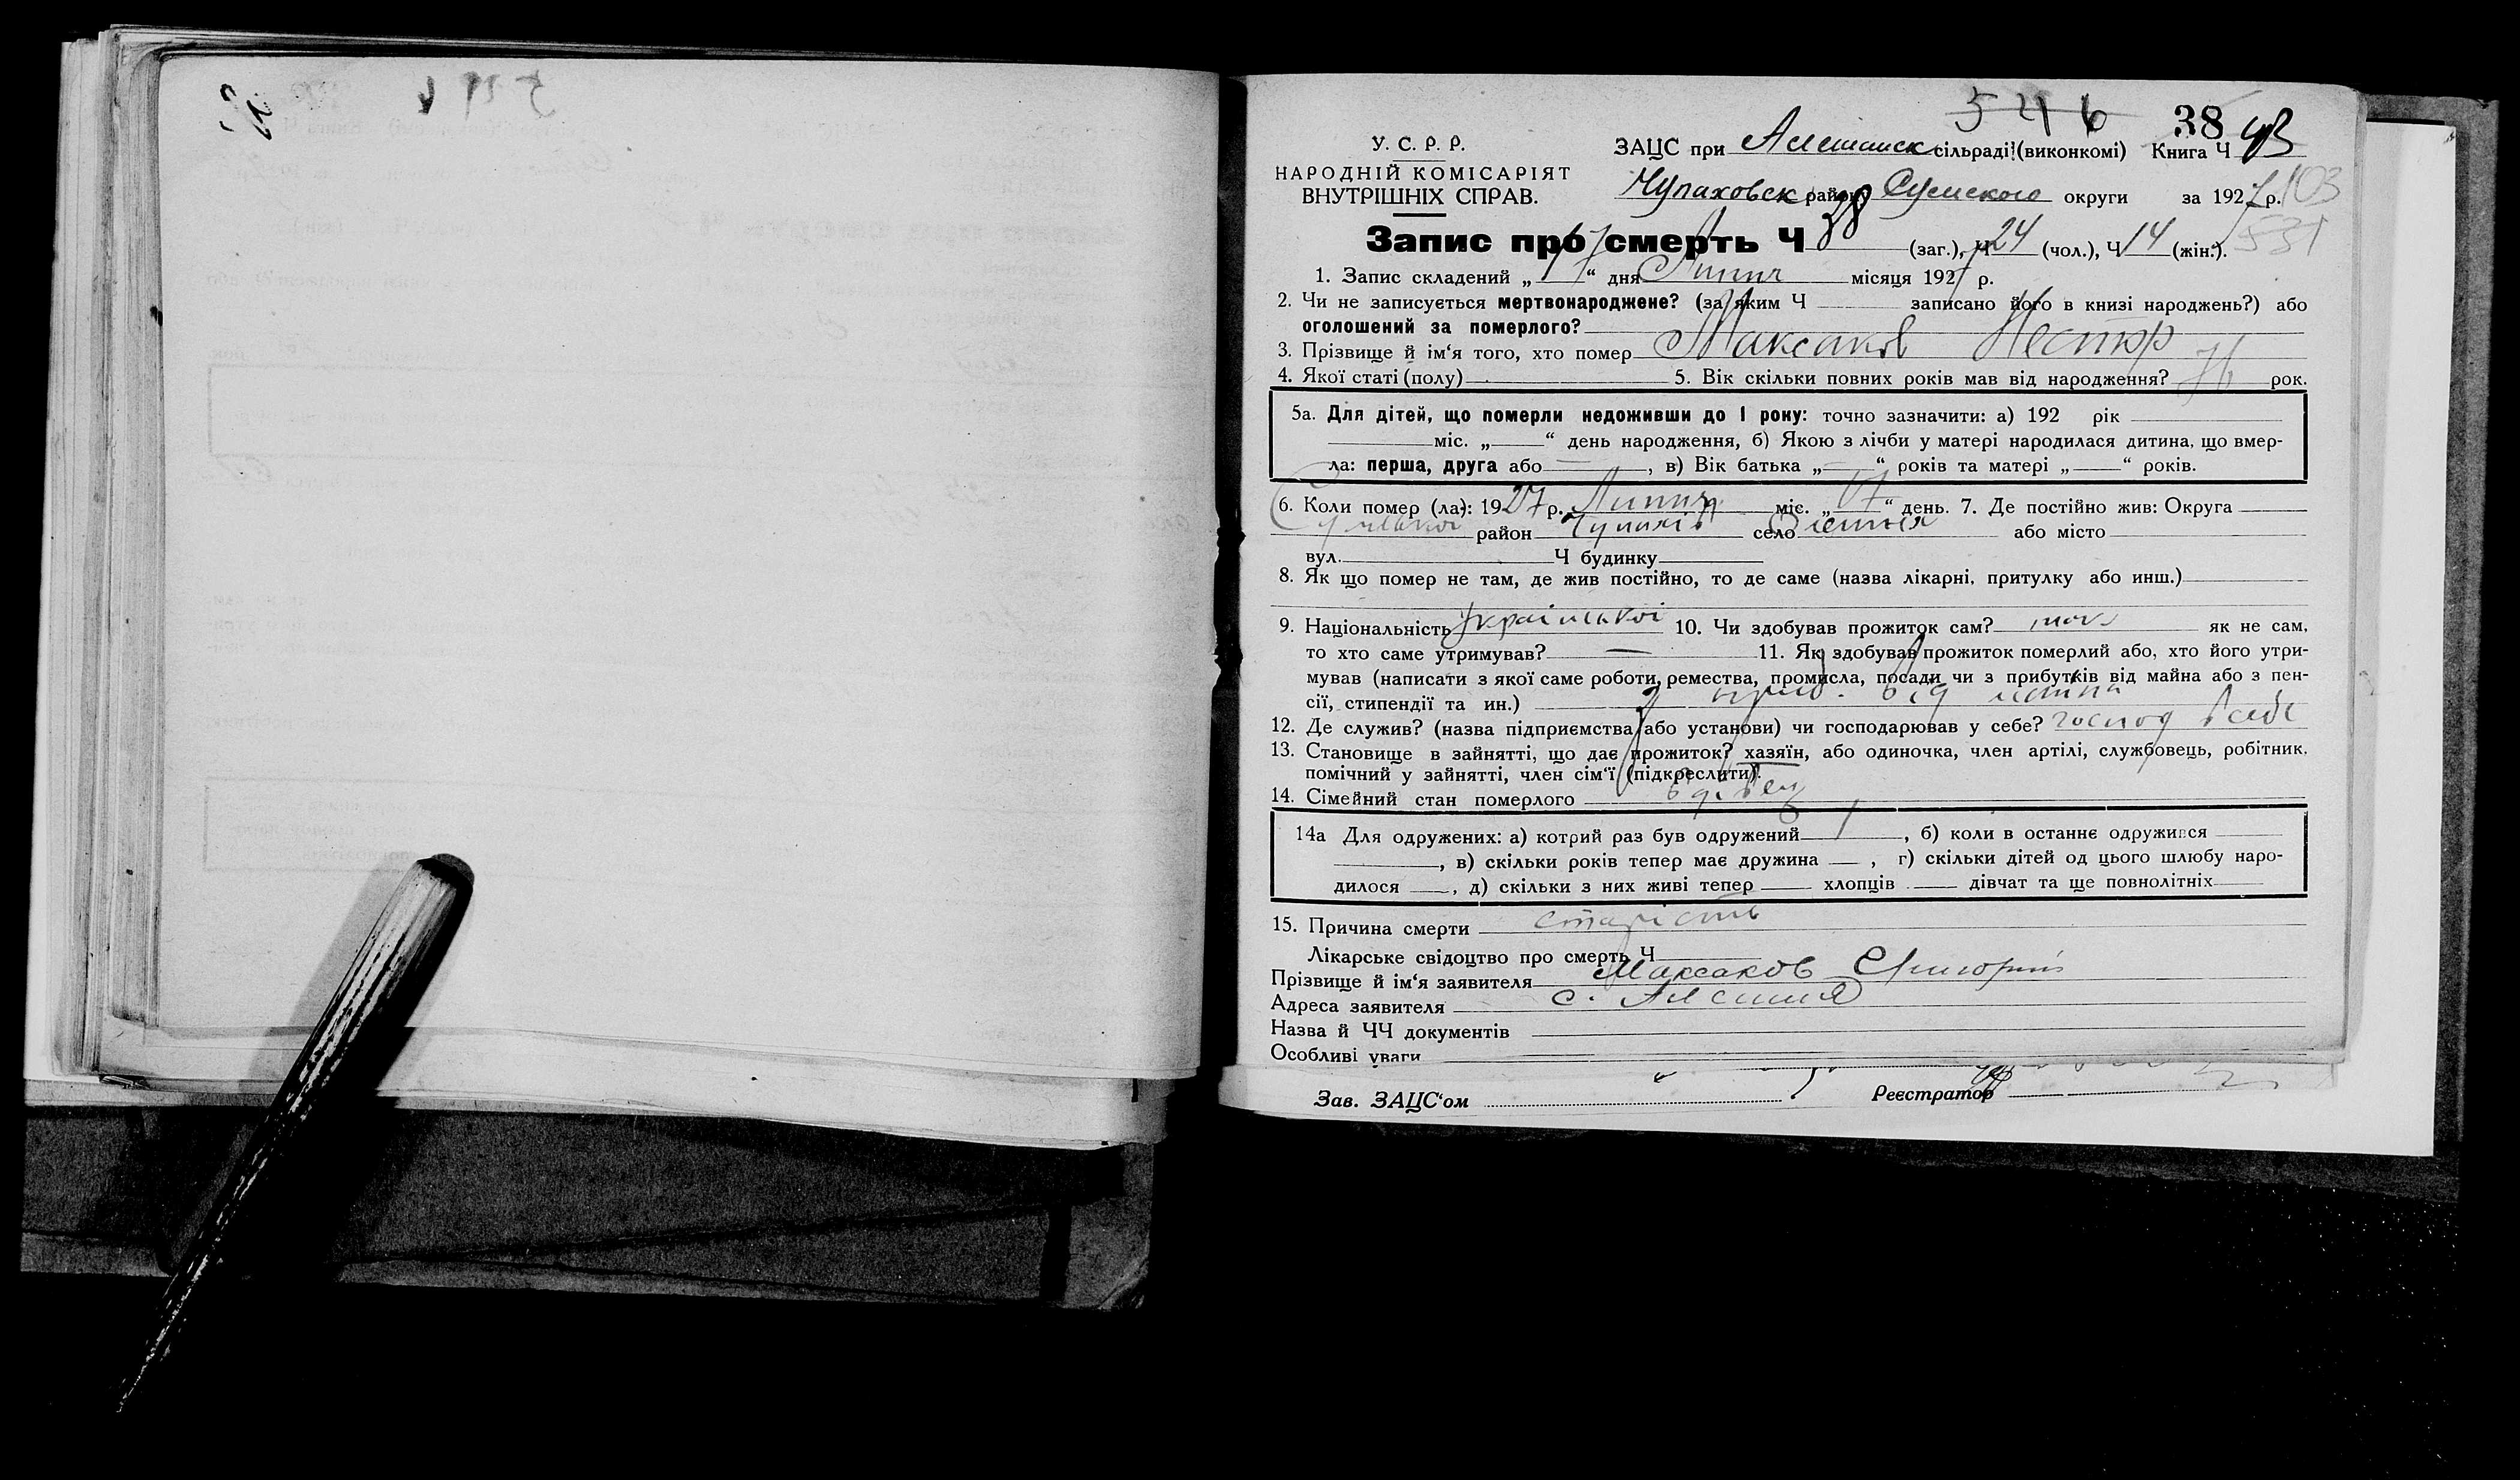 546 38
У. С. Р. Р. ЗАЦС при Алешанск сільраді (виконкомі) Книга Ч 43
НАРОДНІЙ КОМІСАРІЯТ
ВНУТРІШНІХ СПРАВ. Чупаховск району Сумского округи за 1927 р. 103
Запис про смерть Ч 38 (заг.), Ч 24 (чол.), Ч 14 (жін.). 531
1. Запис складений „17“ дня Липня місяця 1927 р.
2. Чи не записується мертвонароджене? (за яким Ч записано його в книзі народжень?) або
оголошений за померлого?
3. Прізвище й ім‘я того, хто помер Максаков Нестор
4. Якої статі (полу) 5. Вік скільки повних років мав від народження? рок.
5а. Для дітей, що померли недоживши до 1 року: точно зазначити: а) 192 рік
міс. „ “ день народження, б) Якою з лічби у матері народилася дитина, що вмер-
ла: перша, друга або — , в) Вік батька „—“ років та матері „ “ років.
6. Коли помер (ла): 1927 р. Липня міс. „17“ день. 7. Де постійно жив: Округа
Сумської район Чупахів село Олешня або місто
вул. Ч будинку
8. Як що помер не там, де жив постійно, то де саме (назва лікарні, притулку або инш.)
9. Національність Української 10. Чи здобував прожиток сам? як не сам,
то хто саме утримував? — 11. Як здобував прожиток померлий або, хто його утри-
мував (написати з якої саме роботи, ремества, промисла, посади чи з прибутків від майна або з пен-
сії, стипендії та ин.) від
12. Де служив? (назва підприємства або установи) чи господарював у себе? господ в себе
13. Становище в зайнятті, що дає прожиток? хазяїн, або одиночка, член артілі, службовець, робітник,
помічний у зайнятті, член сім‘ї (підкреслити).
14. Сімейний стан померлого вдівец
14а Для одружених: а) котрий раз був одружений 1 , б) коли в останнє одружився
, в) скільки років тепер має дружина , г) скільки дітей од цього шлюбу наро-
дилося , д) скільки з них живі тепер хлопців дівчат та ще повнолітніх
15. Причина смерти старість
Лікарське свідоцтво про смерть Ч
Прізвище й ім‘я заявителя Максаков Григорий
Адреса заявителя с. Алешня
Назва й ЧЧ документів
Особливі уваги
Зав. ЗАЦС‘ом Реєстратор